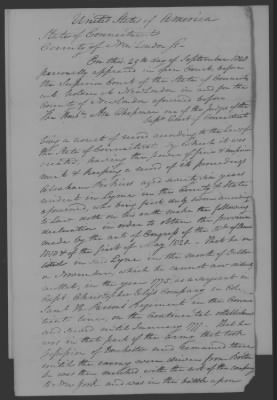 United States of America
State of Connecticut
County of New London ss.
On this 29th day of September 1820
personally appeared in open Court before
the Superior Court of the State of Connecti
cut holden at New London in and for the
County of New London aforesaid before
The Honble Asa Chapman one of the Judges of the
Supr Court of Connecticut
being a court of record according to the law of
the State of Connecticut by which it was
created, having the power of fine & imprison
ment & keeping a record of its proceedings
Abraham Perkins aged seventy six years
resident in Lyme in the County & State
aforesaid, who being first duly sworn according
to law doth on his oath make the following
declaration in order to obtain the provision
made by the act of Congress of the 18th of March
1818 & of the first of May 1820. That he en
listed in Lyme in the month of
or November, which he cannot
in the year 1775 as a sergeant in
Capt Christopher Company in Col.
Saml H. Parsons Regiment in the Connec
ticut line, on the Continental establishment
and served until January 177 That he
was in that part of the army that took
possession of Dorchester and remained there
until the enemy were driven from Boston
he was then marched with the rest of the company
to New York and was in the battle upon